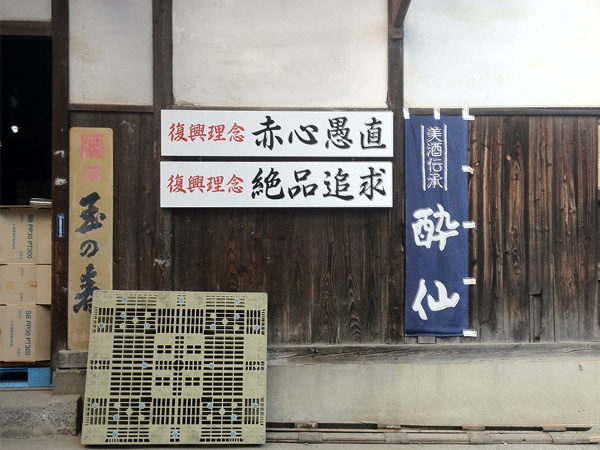 復興理念 赤心愚直
復興理念 絶品追求
美酒伝承
酔仙
玉の春
SB PP30 PT300
SB PP30 PT300